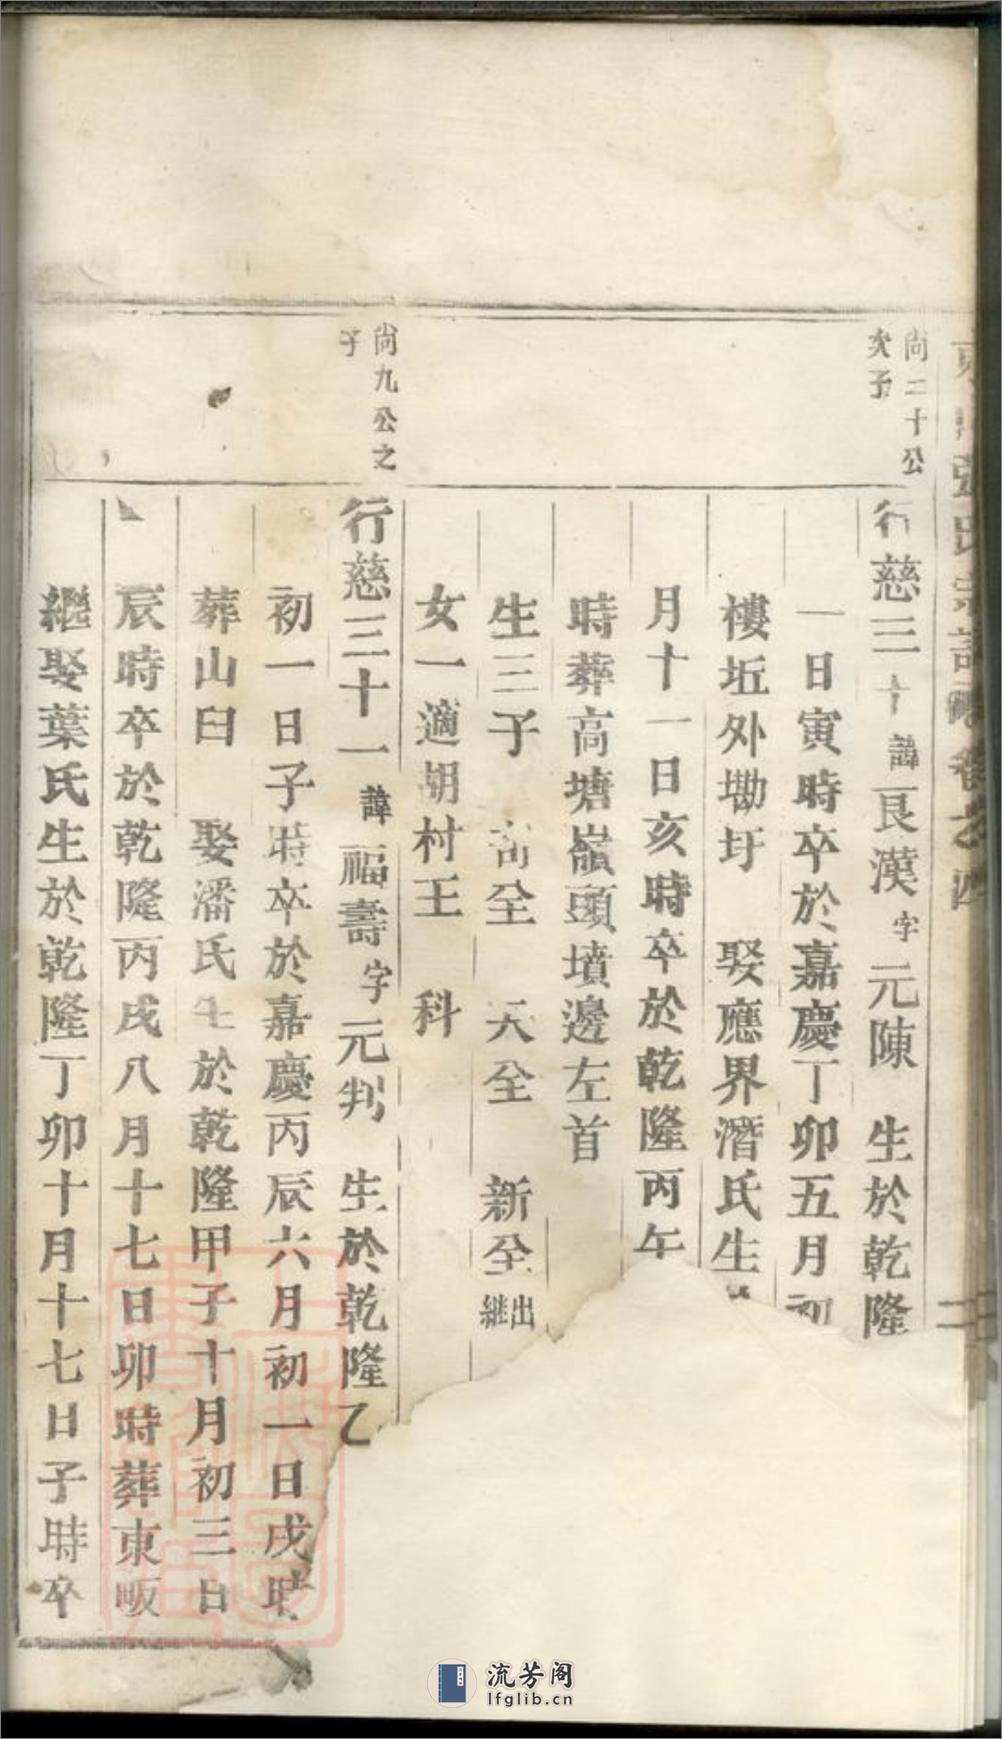 張氏宗譜卷之四
尚二十公
次子
行慈三十諱艮漢字元陳　生於乾隆
一日寅時卒於嘉慶丁卯五月初
樓坵外墈圩　娶應界潛氏生
月十一日亥時卒於乾隆丙午
時葬高塘嶺頭墳邊左首
生三子　尚全　天全　新全出繼
女一適胡村王　科
尚九公之
子
行慈三十一諱福壽字元判　生於乾隆乙
初一日子時卒於嘉慶丙辰六月初一日戌時
葬山曰　娶潘氏生於乾隆甲子十月初三日
辰時卒於乾隆丙戌八月十七日卯時葬東畈
繼娶葉氏生於乾隆丁卯十月十七日子時卒
流芳阁
lfglib.cn